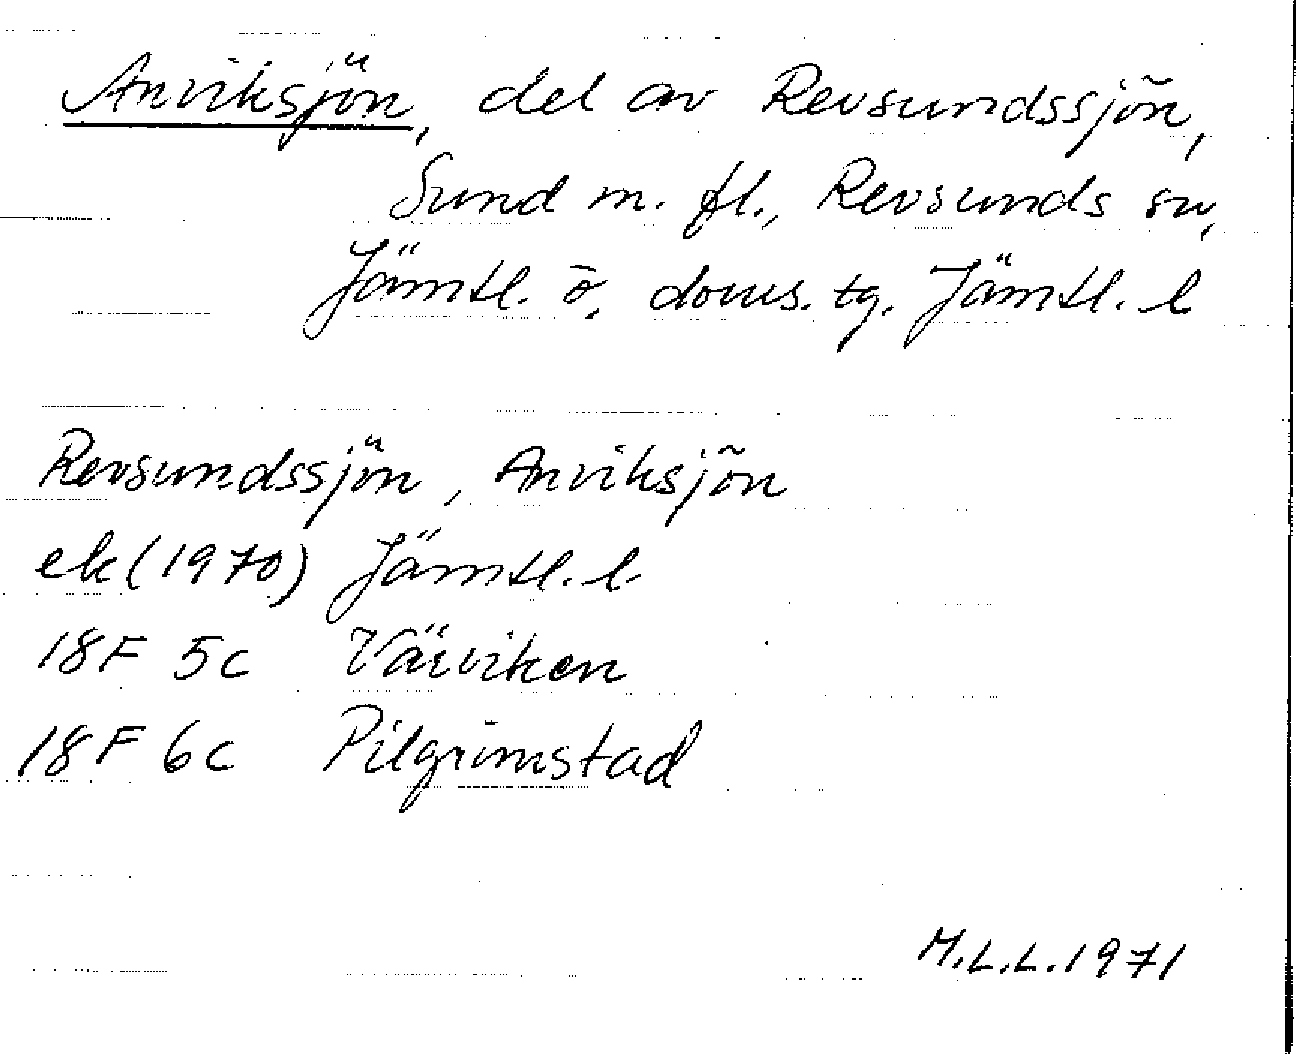 Anviksjön, del av Revsundssjön,
Sund m. fl., Revsunds sn,
Jämtl. ö. doms. tg. Jämtl. l
Revsundssjön, Anviksjön
ek (1970) Jämtl. l.
18F 5c Väviken
18F 6c Pilgrimstad
M.L.L. 1971